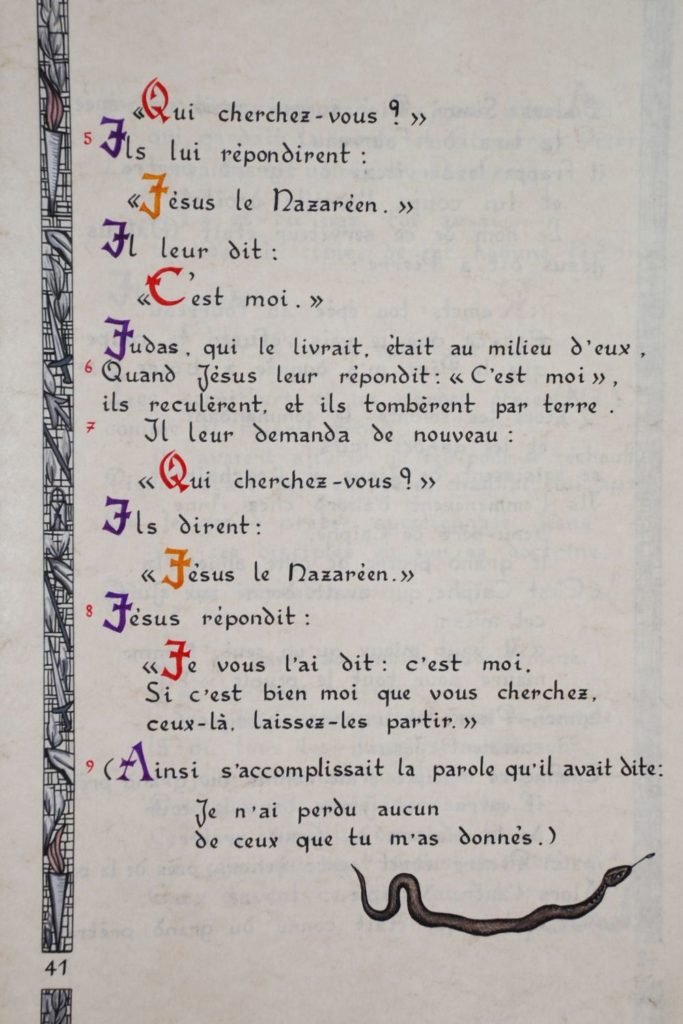 «Qui cherchez-vous ? »
5 Ils lui répondirent :
«Jésus le Nazaréen. »
Il leur dit :
«C'est moi. »
Judas, qui le livrait, était au milieu d'eux,
6 Quand Jésus leur répondit : « C'est moi »,
ils reculèrent, et ils tombèrent par terre .
7 Il leur demanda de nouveau :
«Qui cherchez-vous ? »
Ils dirent :
«Jésus le Nazaréen. »
8 Jésus répondit :
«Je vous l'ai dit : c'est moi.
Si c'est bien moi que vous cherchez,
ceux-là, laissez-les partir. »
9 (Ainsi s'accomplissait la parole qu'il avait dite :
Je n'ai perdu aucun
de ceux que tu m'as donnés.)
41